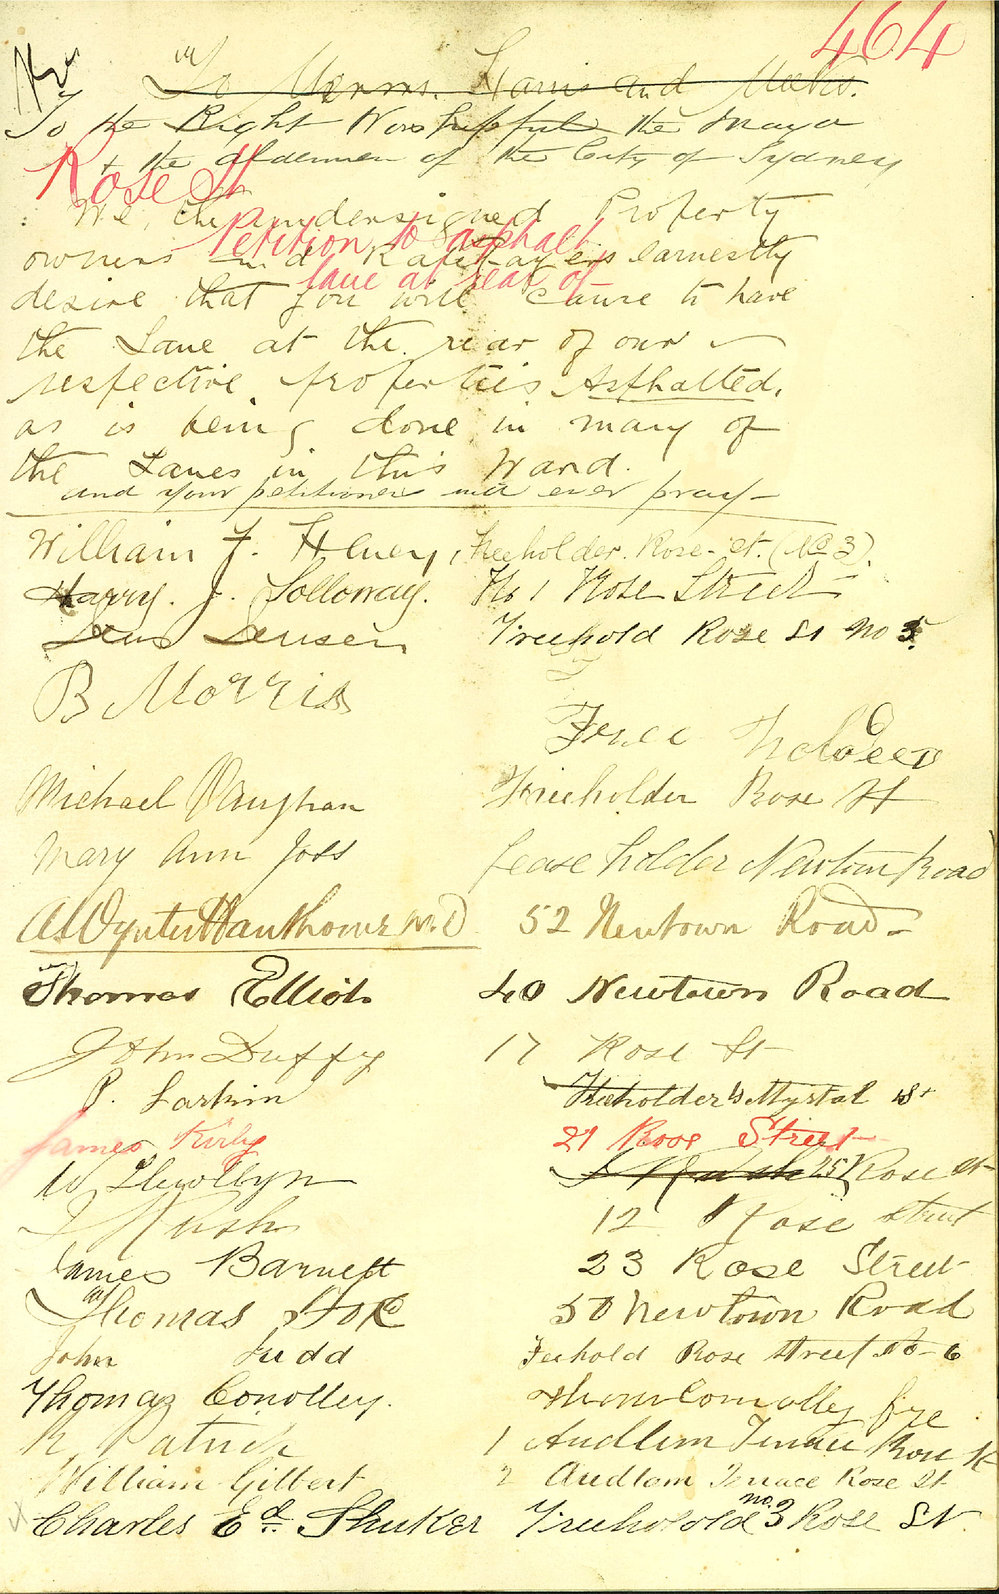 464
To Messrs. Harris and Meeks.
To the Right Worshipful the Mayor
& the Aldermen of the City of Sydney
Rose St
We, the undersigned Property
Petition to asphalt
owners and Ratepayers earnestly
lane at rear of
desire that you will cause to have
the Lane at the rear of our
respective properties Asphalted,
as is being done in many of
the Lanes in this Ward.
and your petitioners will ever pray –
William F. Henery, Freeholder. Rose St. (No 3).
Harry. J. Solloway. No 1 Rose Street
Jens Jensen Freehold Rose St No 5.
B Morris Free holder
Michael Vaughan Freeholder Rose St
Mary Ann Joss Leaseholder Newtown Road
Hawthorne M.D 52 Newtown Road –
Thomas Elliot 40 Newtown Road
John Duffy 17 Rose St
P. Larkin Freeholder Myrtal St
James Kirby 21 Rose Street
W Llewellyn J Rush 25 Rose St
J Rush 12 Rose street
James Barnett 23 Rose Street
Thomas Fox 50 Newtown Road
John Judd Feehold Rose street No 6
Thomas Conolley. Thomas Connolley free
R Patrick 1 Audlem Terrace Rose St
William Gilbert 2 Audlam Terrace Rose St
Charles Ed. Shuker Freehold no 3 Rose St.